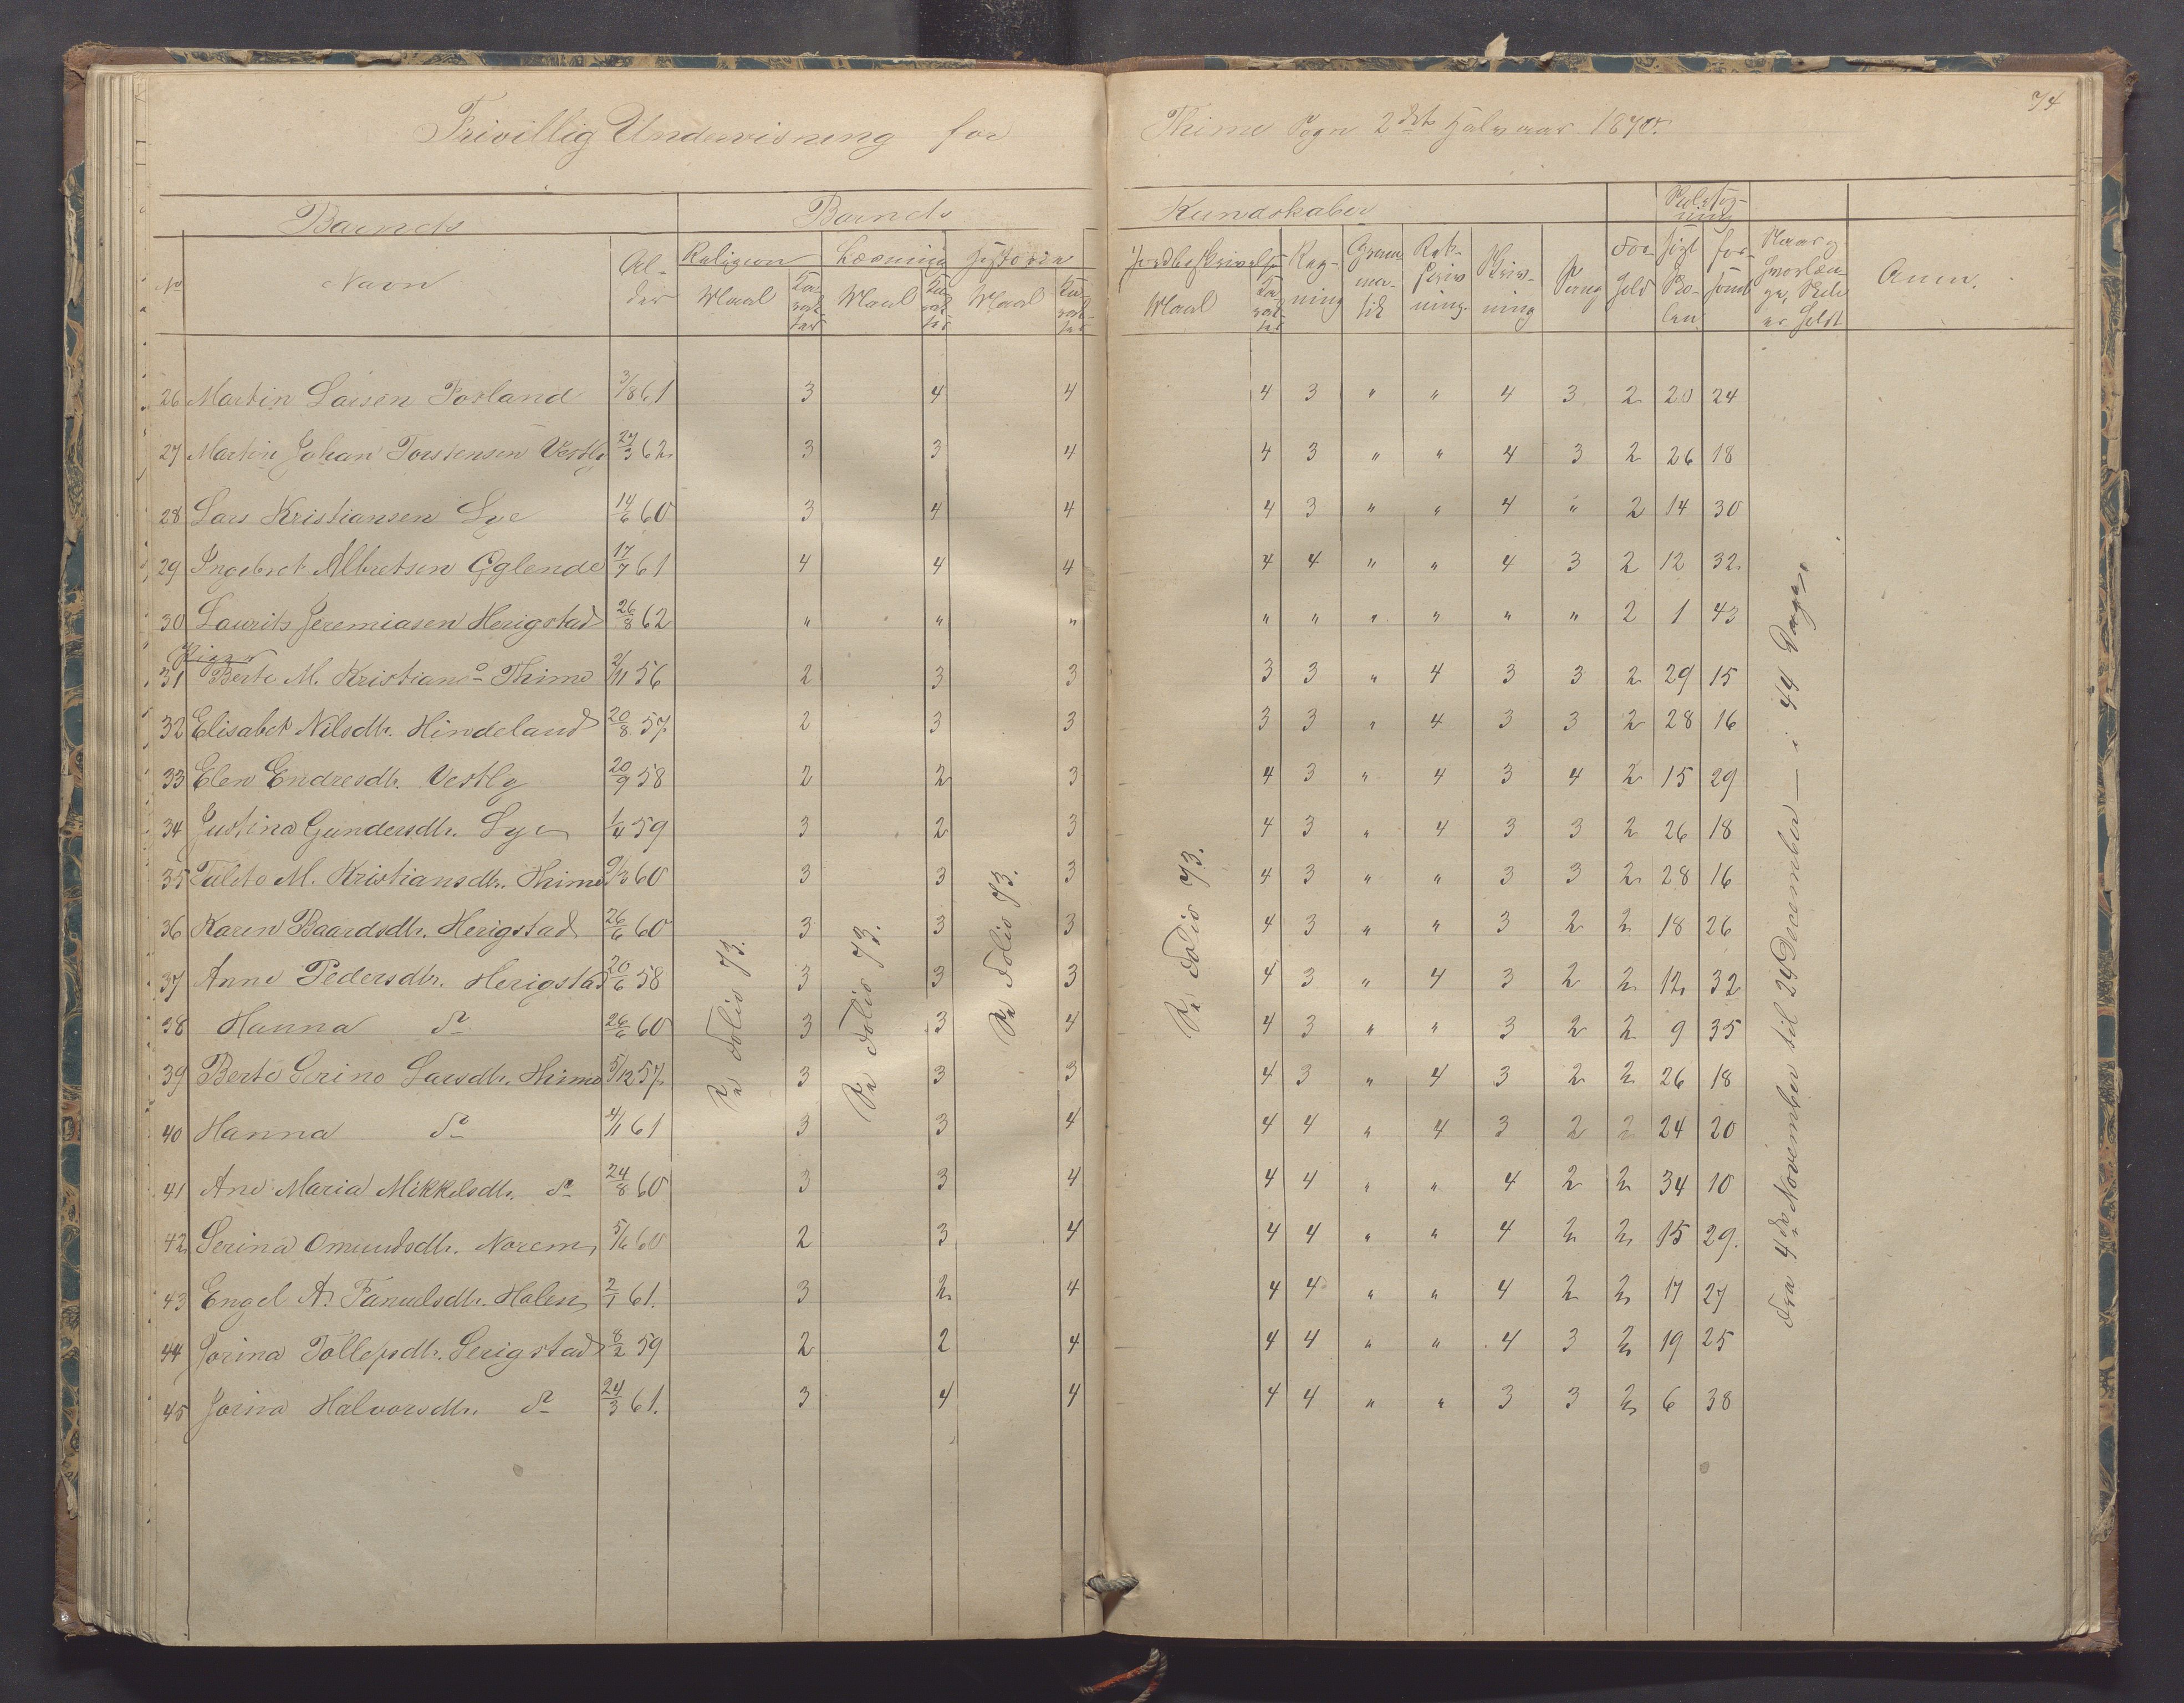 74
Frivillig Undervisning for Thime Sogn 2det Halvaar 1870.
Barnets Barnets Kundskaber
No Navn Alder Religion Læsning Historie Jordbeskrivelse Regning Grammatik Retskrivning Skrivning Sang Forhold søgt Skolen forsømt Anm.
Maal Karakter Maal Karakter Maal Karakter Maal Karakter
26 Martin Larsen Forland 3/8 61 3 4 4 4 3 " " 4 3 2 20 24
27 Martin Johan Torstensen Vestly 27/3 62 3 3 4 4 3 " " 4 3 2 26 18
28 Lars Kristiansen Lye 14/6 60 3 4 4 4 3 " " 4 " 2 14 30
29 Ingebret Albretsen Eglende 17/7 61 4 4 4 4 4 " " 4 3 2 12 32
30 Laurits Jeremiasen Herigstad 26/8 62 " " " " " " " " " 2 1 43
Piger
31 Berte M. Kristiansd Thime 2/11 56 2 3 3 3 3 " 4 3 3 2 29 15
32 Elisabet Nilsdtr. Hindeland 20/8 57 2 3 3 3 3 " 4 3 3 2 28 16
33 Elen Endresdtr. Vestly 20/9 58 2 2 3 4 3 " 4 3 4 2 15 29
34 Justina Gundersdtr. Lye 1/4 59 3 2 3 4 3 " 4 3 3 2 26 18
35 M. Kristiansdtr. Thime 9/3 60 3 3 3 4 3 " " 3 3 2 28 16
36 Karen Baardsdtr. Herigstad 26/6 60 3 3 3 4 3 " " 3 2 2 18 26
37 Anne Pedersdtr. Herigstad 20/6 58 3 3 3 4 3 " 4 3 2 2 12 32
38 Hanna do 26/6 60 3 3 4 4 3 " " 3 2 2 9 35
39 Berte Serine Larsdtr. Thime 5/12 57 3 3 3 4 3 " 4 3 2 2 26 18
40 Hanna do 4/11 61 3 3 4 4 4 " 4 3 2 2 24 20
41 Ane Maria Mikkelsdtr. do 24/8 60 3 3 4 4 4 " " 4 2 2 34 10
42 Serina Omundsdtr. Norem 5/6 60 2 3 4 4 4 " " 4 2 2 15 29.
43 Engel A. Hølen 2/1 61. 3 2 4 4 4 " " 4 2 2 17 27
44 Jorina Tollefsdtr. Serigstad 8/2 59 2 2 4 4 4 " " 4 3 2 19 25
45 Jorina Halvorsdtr. do 24/3 61. 3 4 4 4 4 " " 3 3 2 6 38
Se Folio 73.
Se Folio 73.
Se Folio 73.
Se Folio 73.
Fra 4de November til 24 December — i 44 Dage